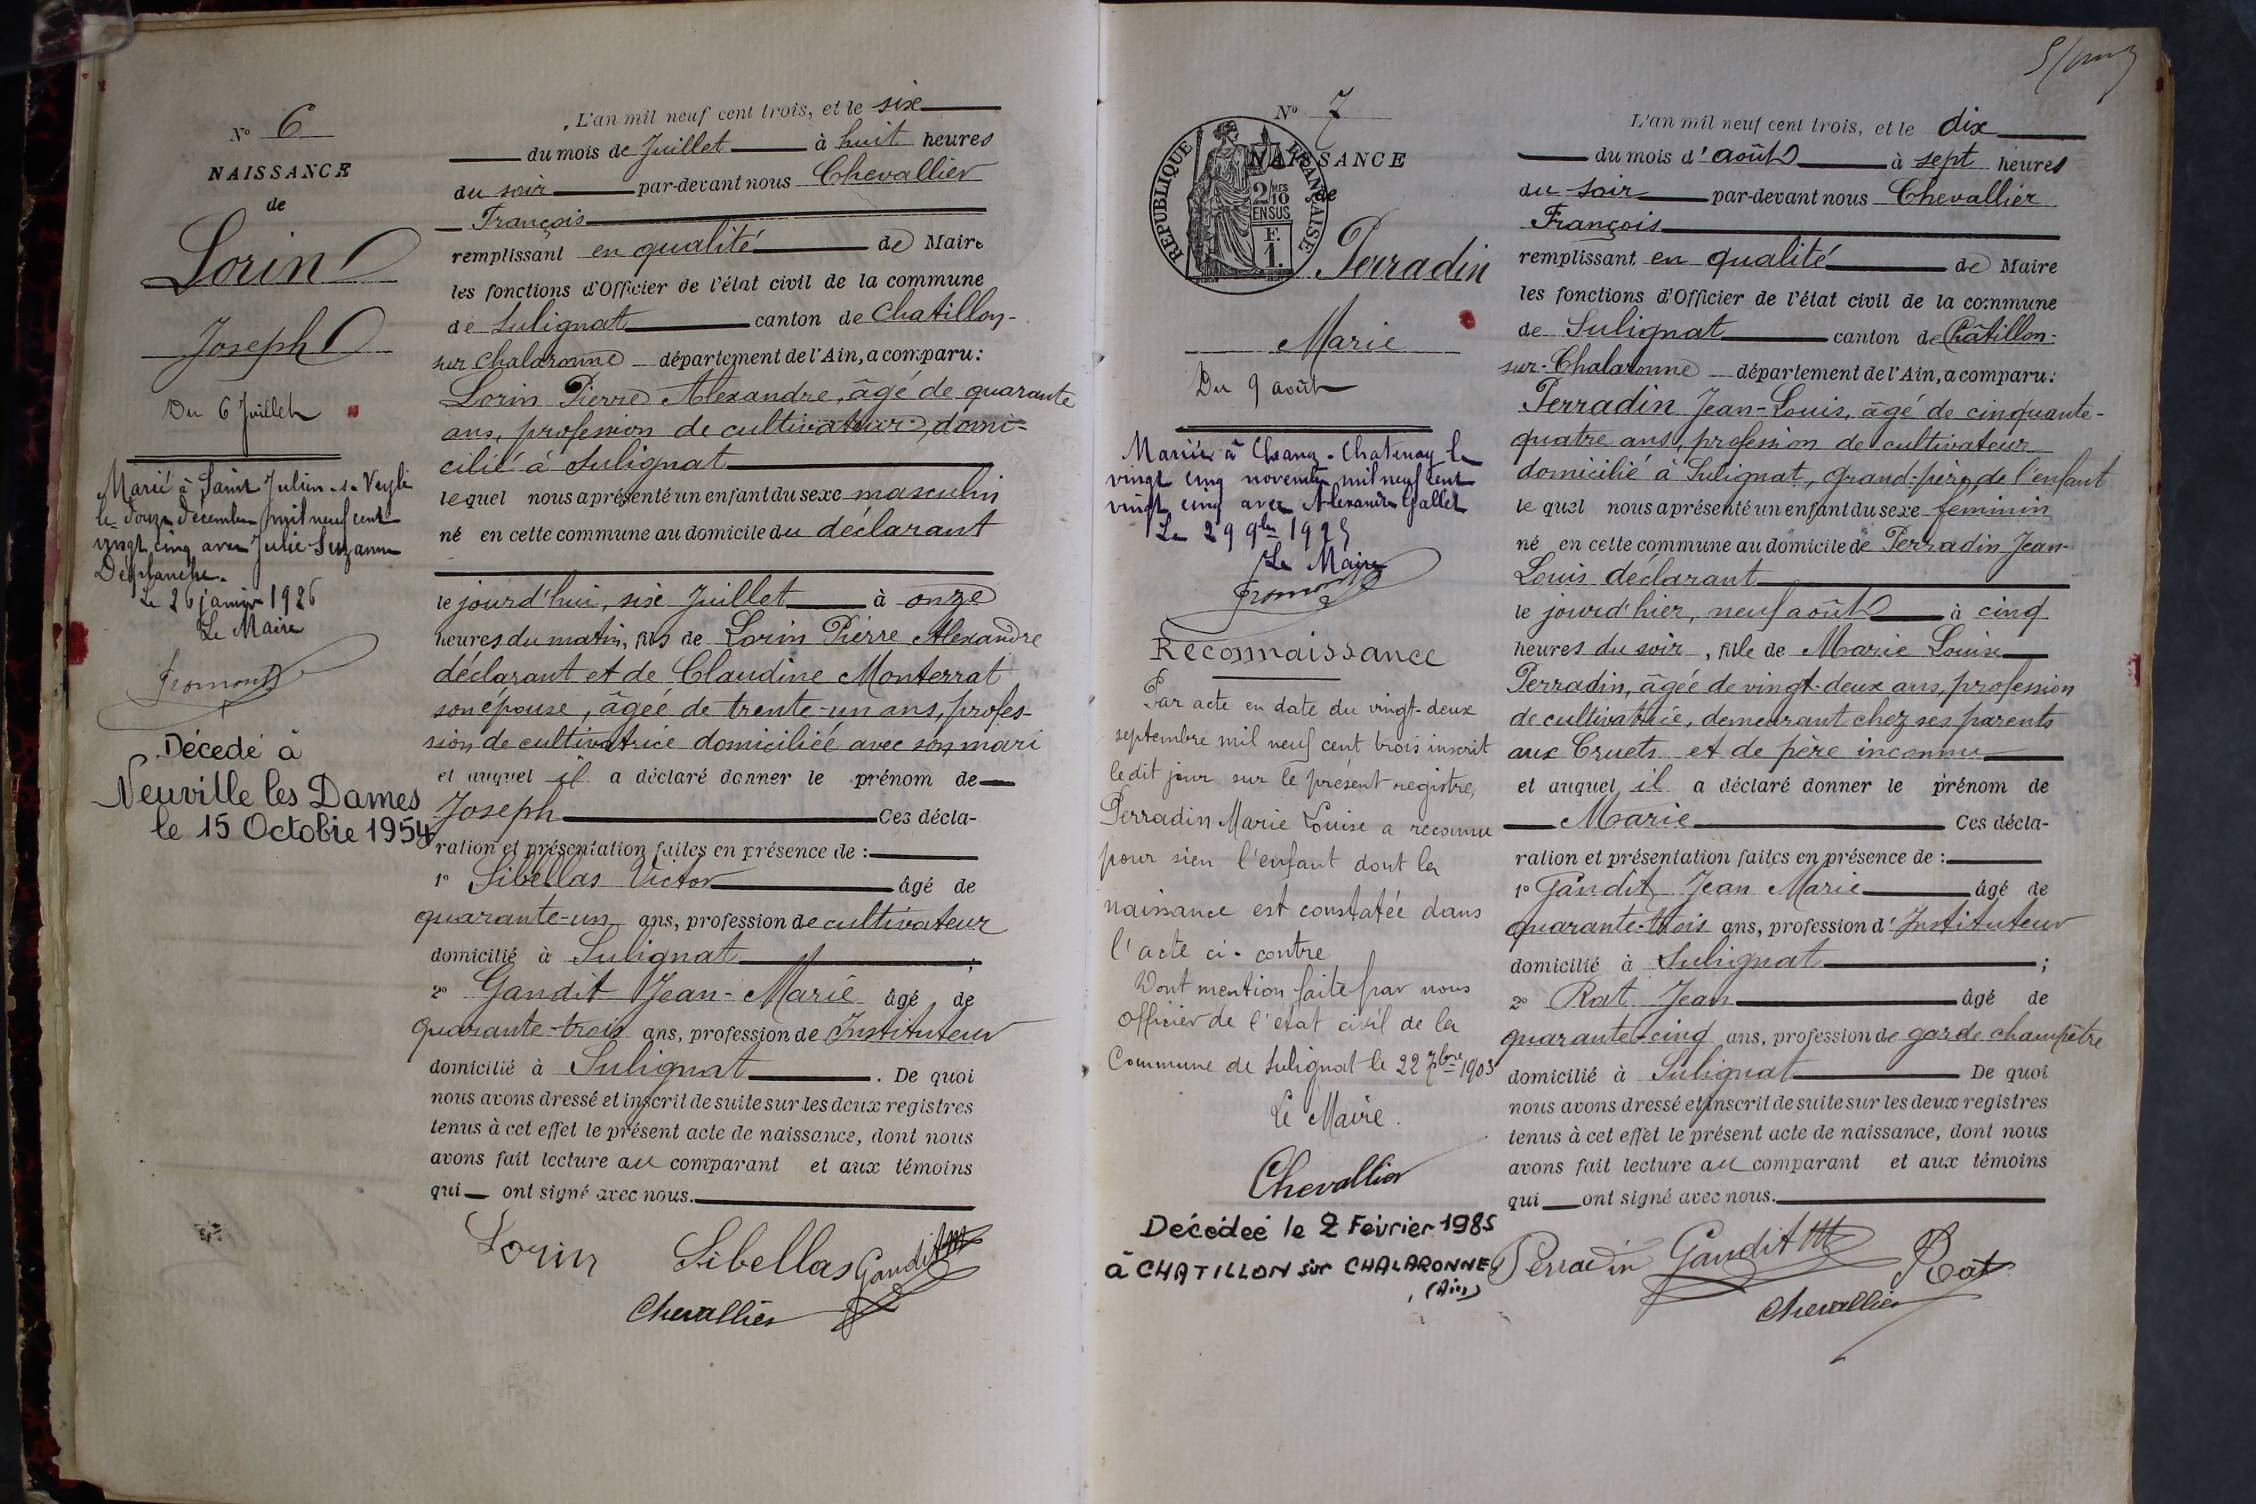 N° 6
NAISSANCE
de
Lorin
Joseph
Du 6 Juillet
Marié à Saint Julien-s-Veyle
le douze décembre mil neuf cent
vingt cinq avec Julie Suzanne
Desplanche.
Le 26 janvier 1926
Le Maire
Fromont
Décédé à
Neuville les Dames
le 15 Octobre 1954
L'an mil neuf cent trois, et le six
du mois de Juillet à huit heures
du soir par-devant nous Chevallier
François
remplissant en qualité de Maire
les fonctions d'Officier de l'état civil de la commune
de Sulignat canton de Chatillon-
sur Chalaronne département de l'Ain, a comparu:
Lorin Pierre Alexandre, âgé de quarante
ans, profession de cultivateur, domi=
cilié à Sulignat
lequel nous a présenté un enfant du sexe masculin
né en cette commune au domicile du déclarant
le jourd'hui, six Juillet à onze
heures du matin, fils de Lorin Pierre Alexandre
déclarant et de Claudine Monterrat
son épouse, âgée de trente-un ans, profes-
sion de cultivatrice domiciliée avec son mari
et auquel il a déclaré donner le prénom de
Joseph Ces décla-
ration et présentation faites en présence de :
1° Sibellas Victor âgé de
quarante-un ans, profession de cultivateur
domicilié à Sulignat ;
2° Gandit Jean-Marie âgé de
quarante-trois ans, profession de Instituteur
domicilié à Sulignat . De quoi
nous avons dressé et inscrit de suite sur les deux registres
tenus à cet effet le présent acte de naissance, dont nous
avons fait lecture au comparant et aux témoins
qui ont signé avec nous.
Lorin Sibellas Gandit
Chevallier
N° 7
NAISSANCE
de
REPUBLIQUE FRANÇAISE
2/10 MES
EN SUS
F.
1.
Perradin
Marie
Du 9 août
Mariée à Chanoz-Chatenay le
vingt cinq novembre mil neuf cent
vingt cinq avec Alexandre Gallet
Le 29 9bre 1925
Le Maire
Fromont
Reconnaissance
Par acte en date du vingt-deux
septembre mil neuf cent trois inscrit
le dit jour sur le présent registre,
Perradin Marie Louise a reconnu
pour sien l'enfant dont la
naissance est constatée dans
l'acte ci-contre
Dont mention faite par nous
officier de l'état civil de la
Commune de Sulignat le 22 7bre 1903
Le Maire.
Chevallier
Décédée le 2 Février 1985
à CHATILLON sur CHALARONNE
(Ain)
L'an mil neuf cent trois, et le dix
du mois d'août à sept heures
du soir par-devant nous Chevallier
François
remplissant en qualité de Maire
les fonctions d'Officier de l'état civil de la commune
de Sulignat canton de Châtillon-
sur-Chalaronne département de l'Ain, a comparu:
Perradin Jean-Louis, âgé de cinquante-
quatre ans, profession de cultivateur
domicilié à Sulignat, grand-père de l'enfant
lequel nous a présenté un enfant du sexe féminin
né en cette commune au domicile de Perradin Jean-
Louis déclarant
le jourd'hier, neuf août à cinq
heures du soir, fille de Marie Louise
Perradin, âgée de vingt-deux ans, profession
de cultivatrice, demeurant chez ses parents
aux Cruets et de père inconnu
et auquel il a déclaré donner le prénom de
Marie Ces décla-
ration et présentation faites en présence de :
1° Gandit Jean Marie âgé de
quarante-trois ans, profession d'Instituteur
domicilié à Sulignat ;
2° Rat Jean âgé de
quarante-cinq ans, profession de garde champêtre
domicilié à Sulignat De quoi
nous avons dressé et inscrit de suite sur les deux registres
tenus à cet effet le présent acte de naissance, dont nous
avons fait lecture au comparant et aux témoins
qui ont signé avec nous.
Perradin Gandit Rat
Chevallier